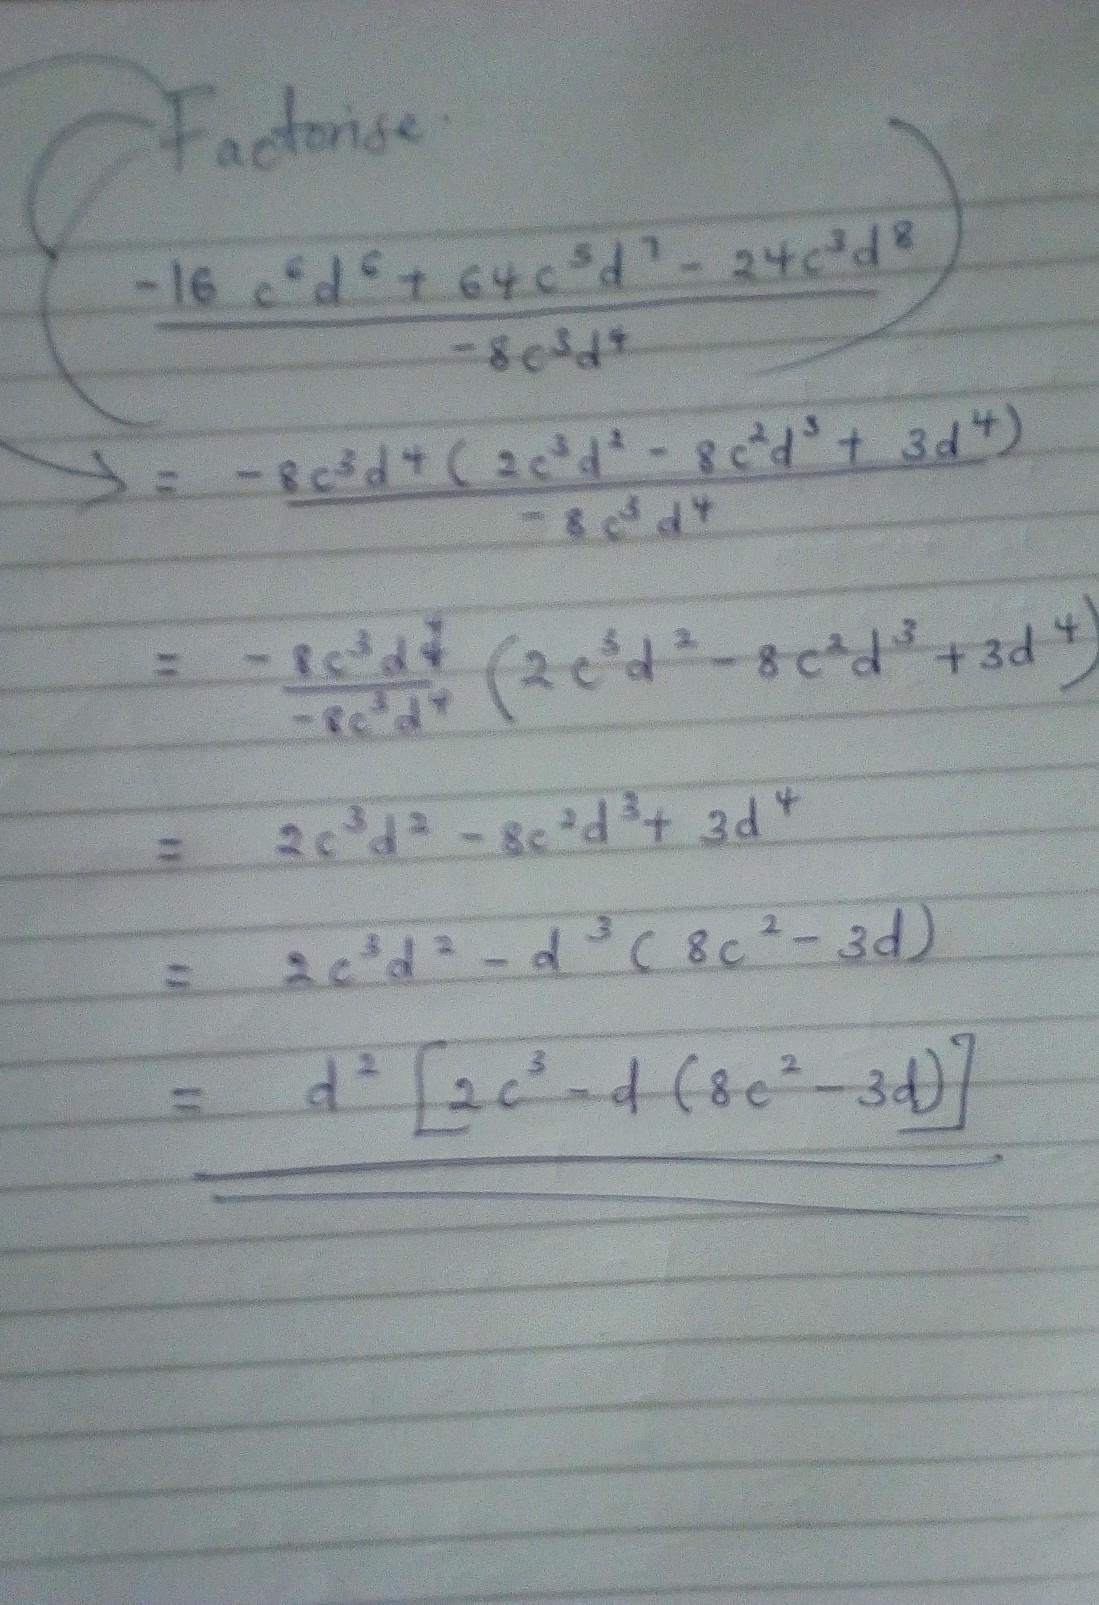 Factorise.
-16 c⁶d⁶ + 64c⁵d⁷ - 24c³d⁸
-8c³d⁴
= -8c³d⁴ ( 2c³d² - 8c²d³ + 3d⁴)
-8c³d⁴
= -8c³d⁴ (2c³d² - 8c²d³ + 3d⁴)
-8c³d⁴
= 2c³d² - 8c²d³ + 3d⁴
= 2c³d² - d³ ( 8c² - 3d)
= d² [2c³ - d (8c² - 3d)]